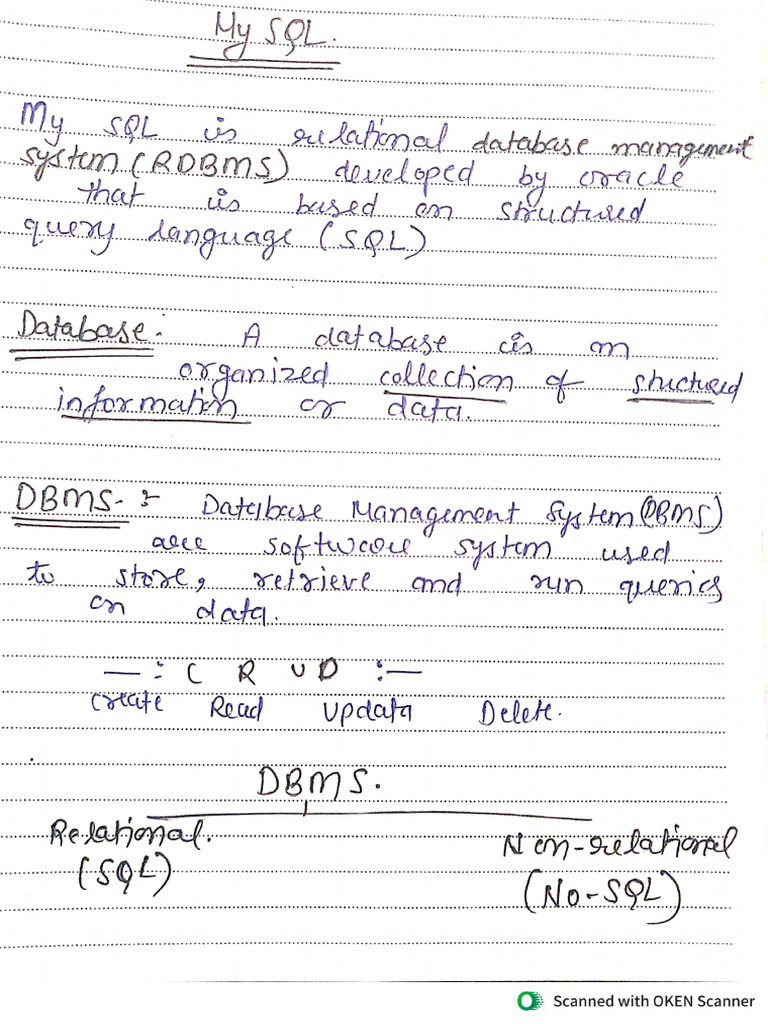 My SQL.
My SQL is relational database management
system (RDBMS) developed by oracle
that is based on structured
query language (SQL)
Database: A database is an
organized collection of stuctured
information or data.
DBMS- : Database Management System (DBMS)
are software system used
to store, retrieve and run queries
on data.
— : C R U D : —
Create Read Updata Delete.
DBMS.
Relational. Non-relational
(SQL) (No-SQL)
Scanned with OKEN Scanner